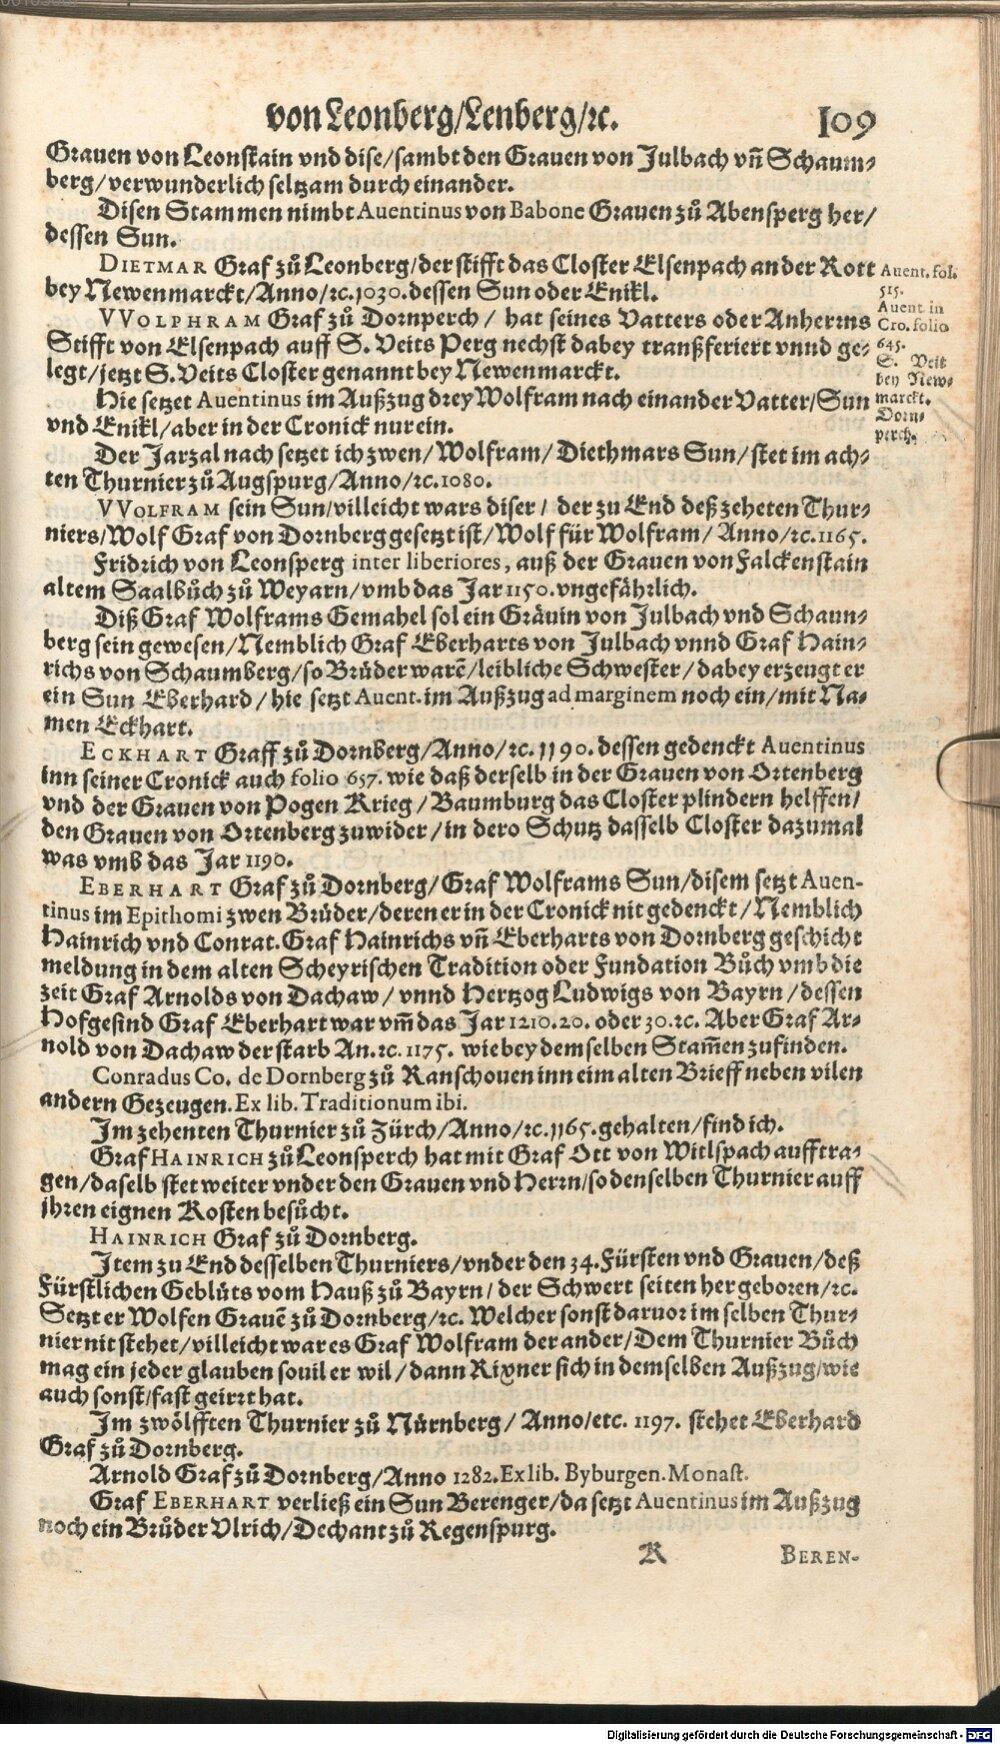 von Leonberg/Lenberg/ꝛc. 109
Grauen von Leonstain vnd dise/sambt den Grauen von Julbach vñ Schaum-
berg/verwunderlich seltzam durch einander.
Disen Stammen nimbt Auentinus von Babone Grauen zů Abensperg her/
dessen Sun.
DIETMAR Graf zů Leonberg/der stifft das Closter Elsenpach an der Rott
bey Newenmarckt/Anno/ꝛc.1030.dessen Sun oder Enikl.
VVOLPHRAM Graf zů Dornperch / hat seines Vatters oder Anherrns
Stifft von Elsenpach auff S. Veits Perg nechst dabey tranßferiert vnnd ge-
legt/jetzt S. Veits Closter genannt bey Newenmarckt.
Hie setzet Auentinus im Außzug drey Wolfram nach einander Vatter/Sun
vnd Enikl/aber in der Cronick nur ein.
Der Jarzal nach setzet ich zwen/Wolfram/ Diethmars Sun/stet im ach-
ten Thurnier zů Augspurg/Anno/ꝛc.1080.
VVOLFRAM sein Sun/villeicht wars diser / der zu End deß zeheten Thur-
niers/Wolf Graf von Dornberg gesetzt ist/Wolf für Wolfram/ Anno/ꝛc.1165.
Fridrich von Leonsperg inter liberiores, auß der Grauen von Falckenstain
altem Saalbůch zů Weyarn/vmb das Jar 1150.vngefährlich.
Diß Graf Wolframs Gemahel sol ein Gräuin von Julbach vnd Schaun-
berg sein gewesen/Nemblich Graf Eberharts von Julbach vnnd Graf Hain-
richs von Schaumberg/so Brüder warẽ/leibliche Schwester/dabey erzeugt er
ein Sun Eberhard/hie setzt Auent.im Außzug ad marginem noch ein/mit Na-
men Eckhart.
ECKHART Graff zů Dornberg/Anno/ꝛc.1190.dessen gedenckt Auentinus
inn seiner Cronick auch folio 657. wie daß derselb in der Grauen von Ortenberg
vnd der Grauen von Pogen Krieg/Baumburg das Closter plindern helffen/
den Grauen von Ortenberg zuwider/in dero Schutz dasselb Closter dazumal
was vmb das Jar 1190.
EBERHART Graf zů Dornberg/Graf Wolframs Sun/disem setzt Auen-
tinus im Epithomi zwen Brüder/deren er in der Cronick nit gedenckt/Nemblich
Hainrich vnd Conrat. Graf Hainrichs vñ Eberharts von Dornberg geschicht
meldung in dem alten Scheyrischen Tradition oder Fundation Bůch vmb die
zeit Graf Arnolds von Dachaw/ vnnd Hertzog Ludwigs von Bayrn/dessen
Hofgesind Graf Eberhart war vm̃ das Jar 1210.20. oder 30.ꝛc. Aber Graf Ar-
nold von Dachaw der starb An.ꝛc.1175. wie bey demselben Stam̃en zufinden.
Conradus Co. de Dornberg zů Ranschouen inn eim alten Brieff neben vilen
andern Gezeugen. Ex lib. Traditionum ibi.
Im zehenten Thurnier zů Zürch/Anno/ꝛc.1165.gehalten/find ich.
Graf HAINRICH zů Leonsperch hat mit Graf Ott von Witlspach aufftra-
gen/daselb stet weiter vnder den Grauen vnd Herrn/so denselben Thurnier auff
ihren eignen Kosten besůcht.
HAINRICH Graf zů Dornberg.
Item zu End desselben Thurniers/vnder den 34.Fürsten vnd Grauen/deß
Fürstlichen Geblůts vom Hauß zů Bayrn/ der Schwert seiten her geboren/ꝛc.
Setzt er Wolfen Grauẽ zů Dornberg/ꝛc. Welcher sonst daruor im selben Thur-
nier nit stehet/villeicht war es Graf Wolfram der ander/Dem Thurnier Bůch
mag ein jeder glauben souil er wil/dann Rixner sich in demselben Außzug/wie
auch sonst/fast geirrt hat.
Im zwölfften Thurnier zů Nürnberg/ Anno/etc. 1197. stehet Eberhard
Graf zů Dornberg.
Arnold Graf zů Dornberg/Anno 1282. Ex lib. Byburgen. Monast.
Graf EBERHART verließ ein Sun Berenger/da setzt Auentinus im Außzug
noch ein Brůder Vlrich/Dechant zů Regenspurg.
K BEREN-
Auent. fol.
515.
Auent. in
Cro. folio
645.
S. Veit
bey New-
marckt.
Dorn-
perch.
Digitalisierung gefördert durch die Deutsche Forschungsgemeinschaft - DFG